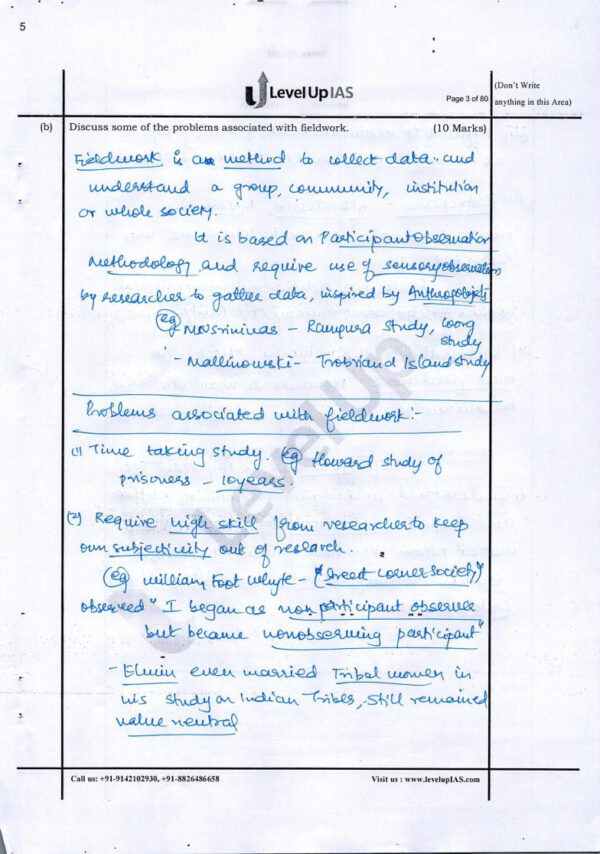 5
Level Up IAS
Page 3 of 80
(Don't Write
anything in this Area)
(b) Discuss some of the problems associated with fieldwork. (10 Marks)
Fieldwork is a method to collect data and
understand a group, community, institution
or whole society.
It is based on Participant Observation
Methodology and require use of sensory observations
by researcher to gather data, inspired by Anthropologists
eg MN Srinivas - Rampura study, Coorg
study
- Mallinowski - Trobriand Island study
Problems associated with fieldwork:-
(1) Time taking study. eg Howard study of
prisoners - 10 years.
(2) Require high skill from researcher to keep
own subjectivity out of research.
eg William Foot Whyte - "Street Corner Society"
observed "I began as non participant observer
but became nonobserving participant"
- Elwin even married Tribal women in
his study on Indian Tribes, still remained
value neutral
LevelUp
Call us: +91-9142102930, +91-8826486658
Visit us : www.levelupIAS.com